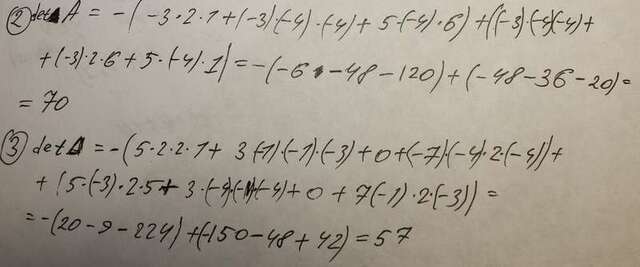 ② det A = -(-3·2·1+(-3)(-4)·(-4)+5·(-4)·6)+((-3)·(-4)(-4)+
+(-3)·2·6+5·(-4)·1)=-(-6-48-120)+(-48-36-20)=
= 70
③ det A = -(5·2·2·1+3·(-1)·(-1)·(-3)+0+(-7)·(-4)·2·(-4))+
+(5·(-3)·2·5+3·(-4)(-1)(-4)+0+7(-1)·2·(-3))=
=-(20-9-224)+(-150-48+42)=57